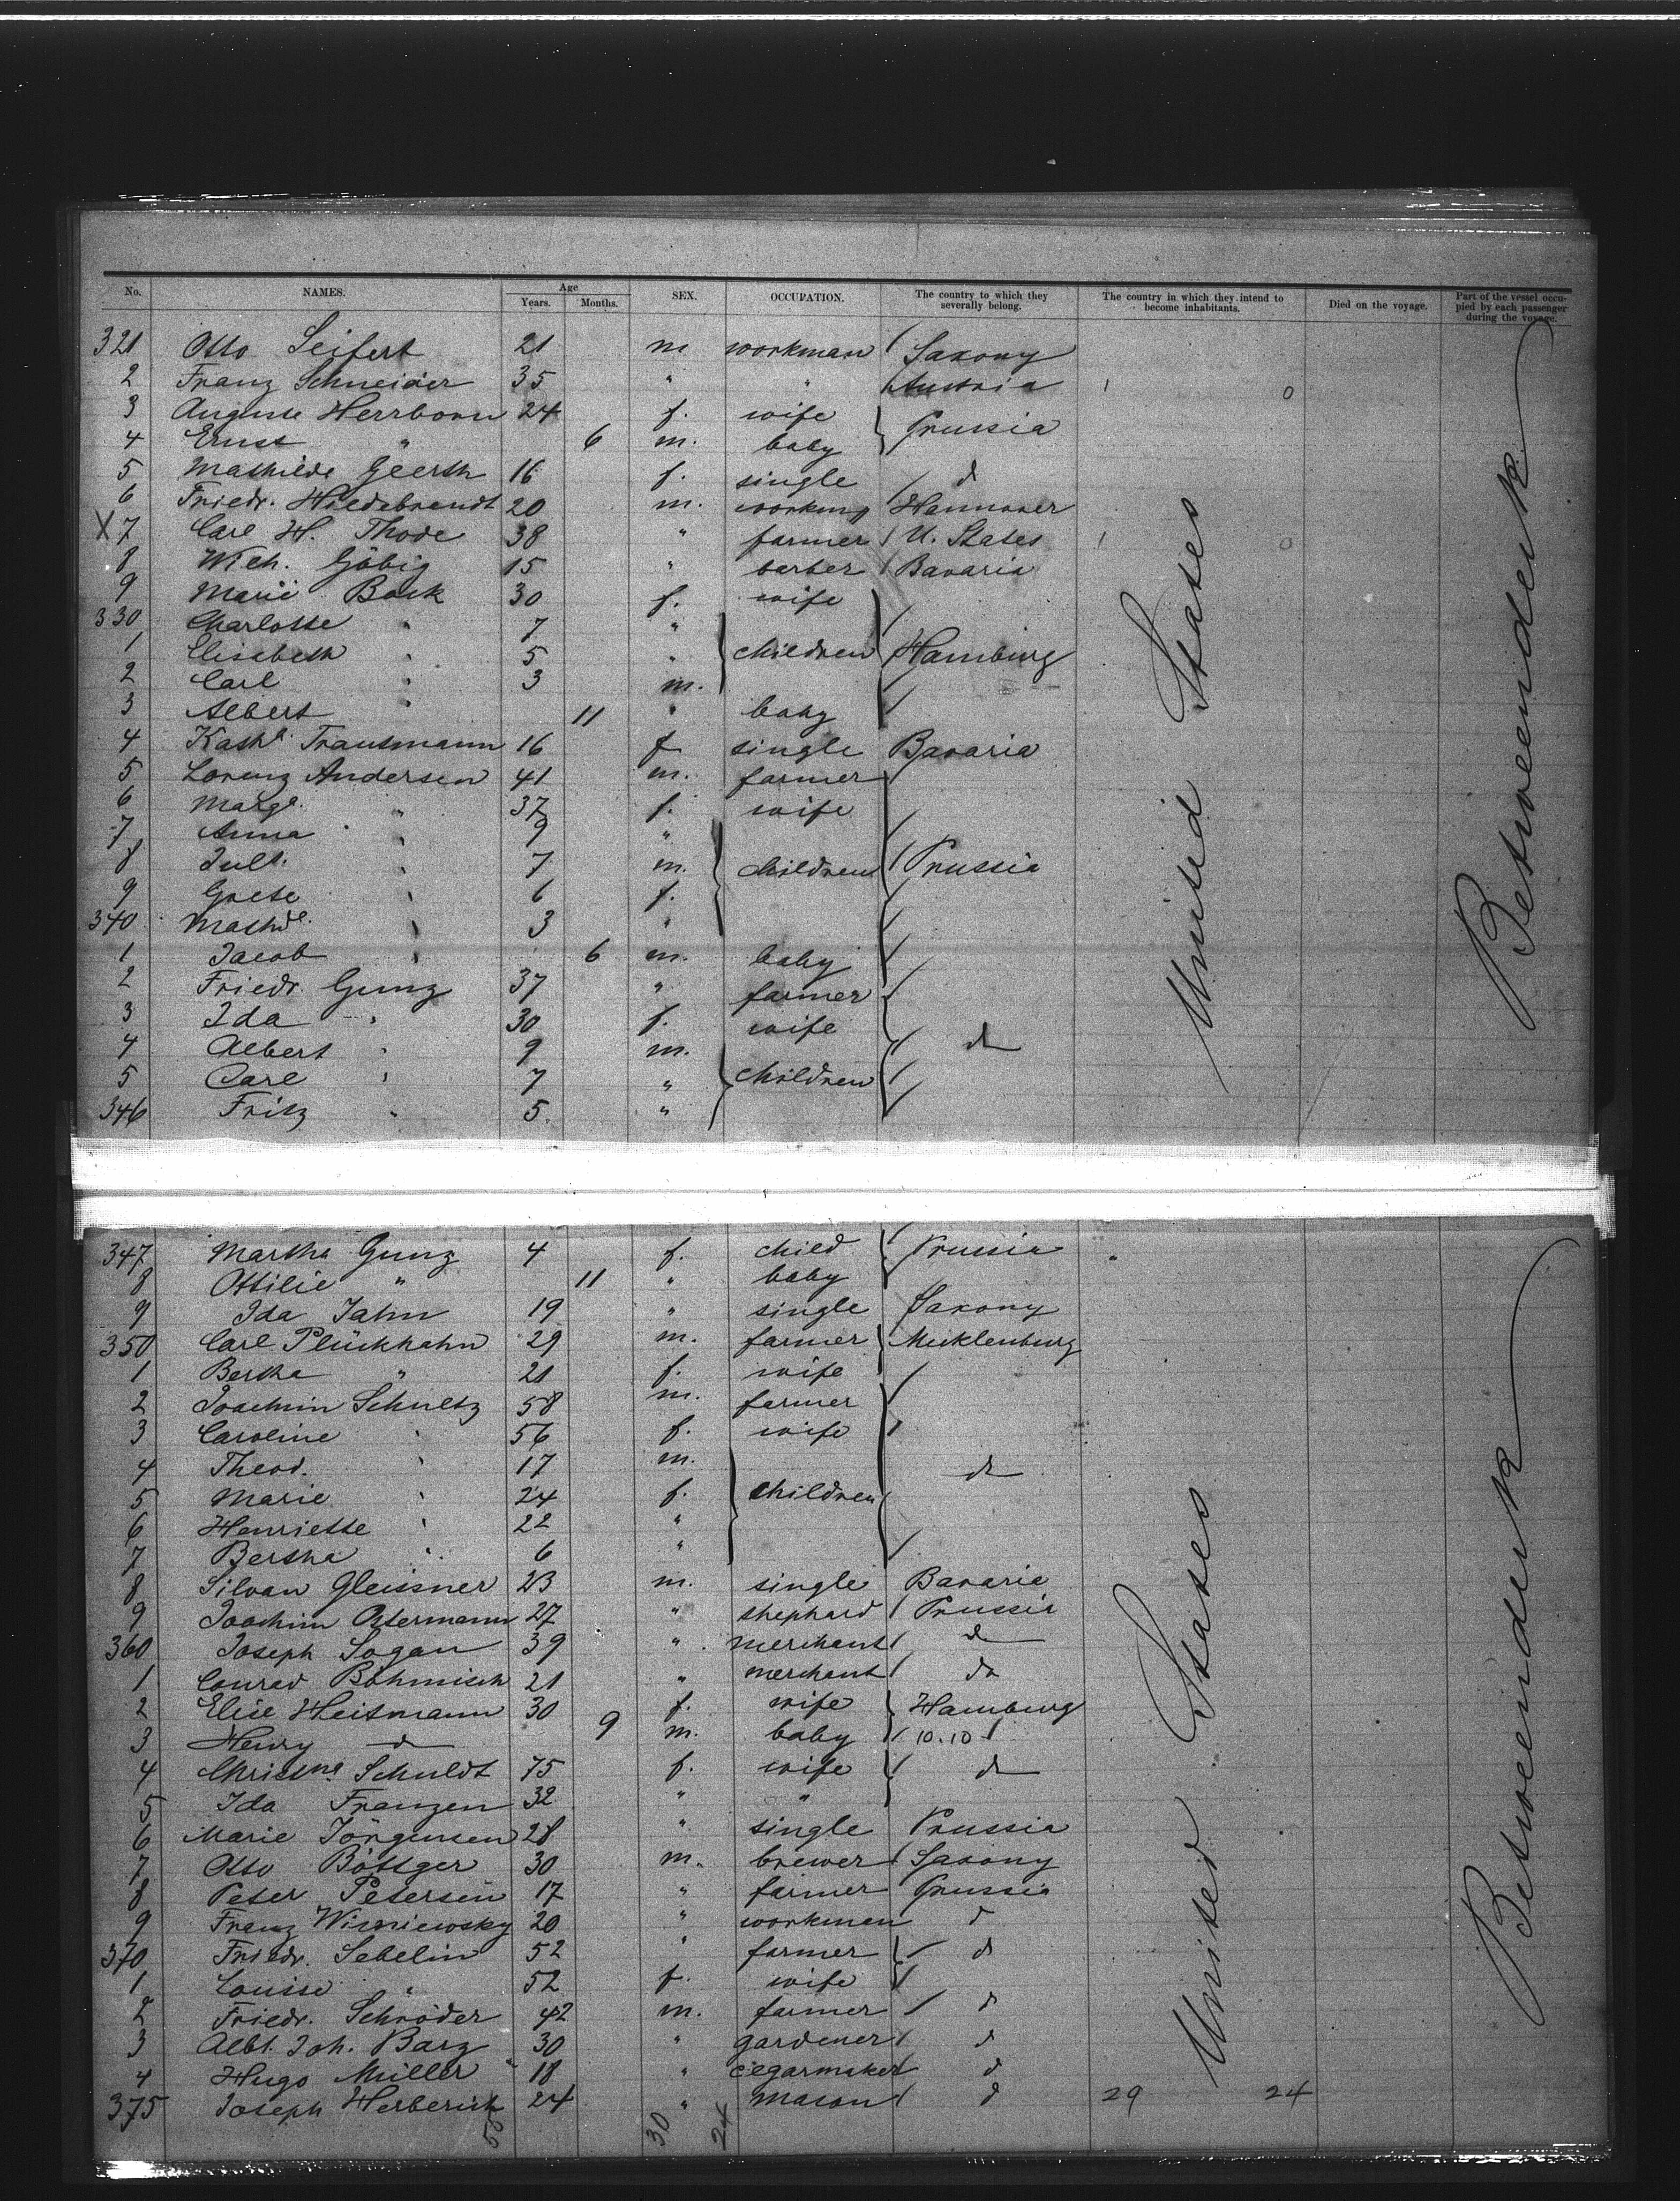 No. NAMES. Age Years. Months. SEX. OCCUPATION. The country to which they severally belong. The country in which they intend to become inhabitants. Died on the voyage. Part of the vessel occupied by each passenger during the voyage.
321 Otto Seifert 21 m workman Saxony
2 Franz Schneider 35 " " Austria
3 Auguste Herrborn 24 f. wife Prussia
4 Ernst " 6 m. baby
5 Mathilde Geerth 16 f. single d
6 Friedr. Hildebrandt 20 m. workmn Hannover
X 7 Carl H. Thode 38 " farmer U. States
8 Wilh. Göbig 15 " barber Bavaria
9 Marie Bock 30 f. wife
330 Charlotte " 7 "
1 Elisabeth " 5 " children Hamburg
2 Carl " 3 m.
3 Albert " 11 " baby
4 Kathe. Trautmann 16 f single Bavaria
5 Lorenz Andersen 41 m. farmer
6 Marge. " 37 f. wife
7 Anna " 9 "
8 Juls. " 7 m. children Prussia
9 Grete " 6 f.
340 Mathde. " 3 "
1 Jacob " 6 m. baby
2 Friedr. Gunz 37 " farmer
3 Ida " 30 f. wife
4 Albert " 9 m. d
5 Carl " 7 " children
346 Fritz " 5 "
United States
Betweendeck
347 Martha Gunz 4 f. child Prussia "
8 Ottilie " 11 " baby
9 Ida Jahn 19 " single Saxony
350 Carl Plückhahn 29 m. farmer Mecklenburg
1 Bertha " 21 f. wife
2 Joachim Schultz 58 m. farmer
3 Caroline " 56 f. wife
4 Theod. " 17 m. d
5 Marie " 24 f. children
6 Henriette " 22 "
7 Bertha " 6 "
8 Silvan Gleissner 23 m. single Bavaria
9 Joachim Ostermann 27 " shephard Prussia
360 Joseph Sogau 39 " merchant d
1 Conrad Böhmisch 21 " merchant do
2 Elise Heitmann 30 f. wife Hamburg
3 Henry d 9 m. baby 10.10
4 Christne. Schuldt 75 f. wife d
5 Ida Franzen 32 " "
6 Marie Jörgensen 28 " single Prussia
7 Otto Böttger 30 m. brewer Saxony
8 Peter Petersen 17 " farmer Prussia
9 Franz Wisniewsky 20 " workmen d
370 Friedr. Sebelin 52 " farmer d
1 Louise " 52 f. wife
2 Friedr. Schröder 42 m. farmer d
3 Albt. Joh. Barz 30 " gardener d
4 Hugo Müller 18 " cigarmaker d
375 Joseph Herberich 24 " mason d 29 24
55 30 24
United States
Betweendeck